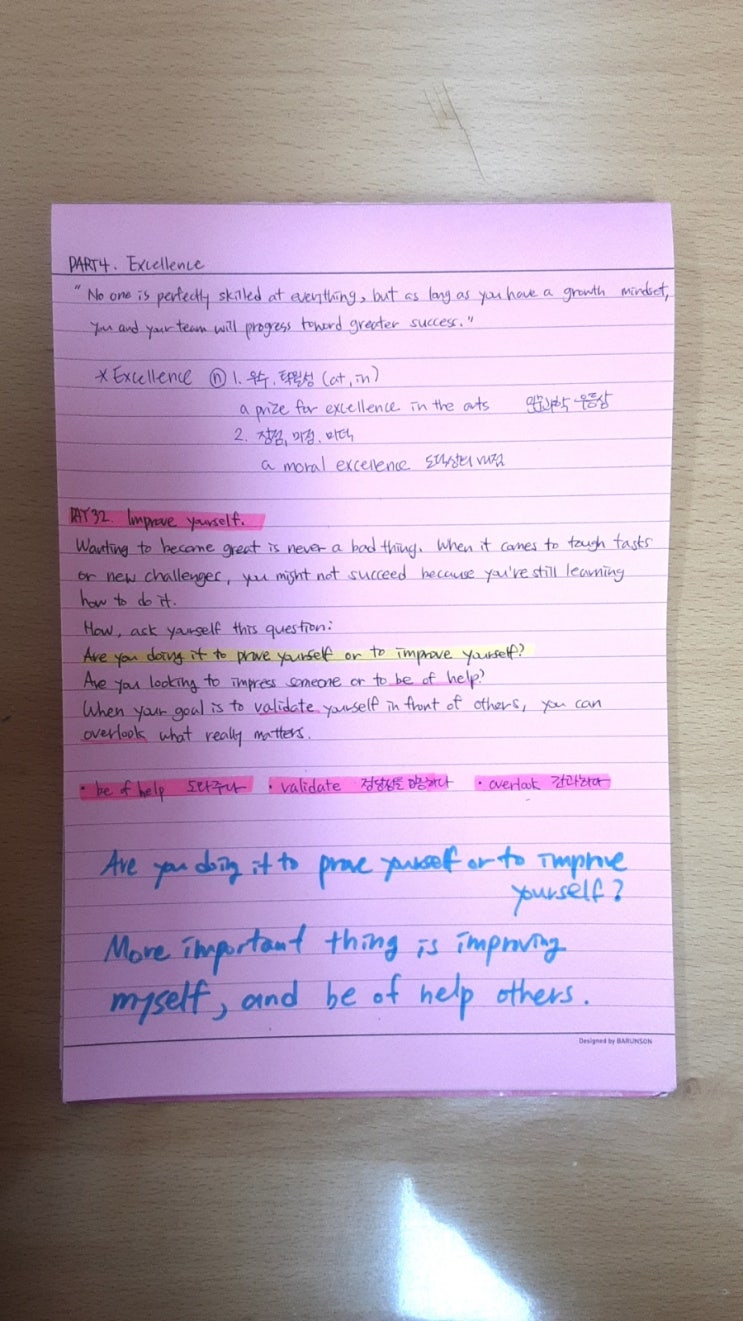 PART4. Excellence
"No one is perfectly skilled at everything, but as long as you have a growth mindset,
you and your team will progress toward greater success."
*Excellence ⓝ 1. 우수. 탁월성 (at, in)
a prize for excellence in the arts
2. 장점, 미점. 미덕
a moral excellence 도덕상의 미점
DAY32. Improve yourself.
Wanting to become great is never a bad thing. When it comes to tough tasks
or new challenges, you might not succeed because you're still learning
how to do it.
Now, ask yourself this question:
Are you doing it to prove yourself or to improve yourself?
Are you looking to impress someone or to be of help?
When your goal is to validate yourself in front of others, you can
overlook what really matters.
· be of help 도와주다 · validate 정당성을 입증하다 · overlook 간과하다
Are you doing it to prove yourself or to improve
yourself?
More important thing is improving
myself, and be of help others.
Designed by BARUNSON